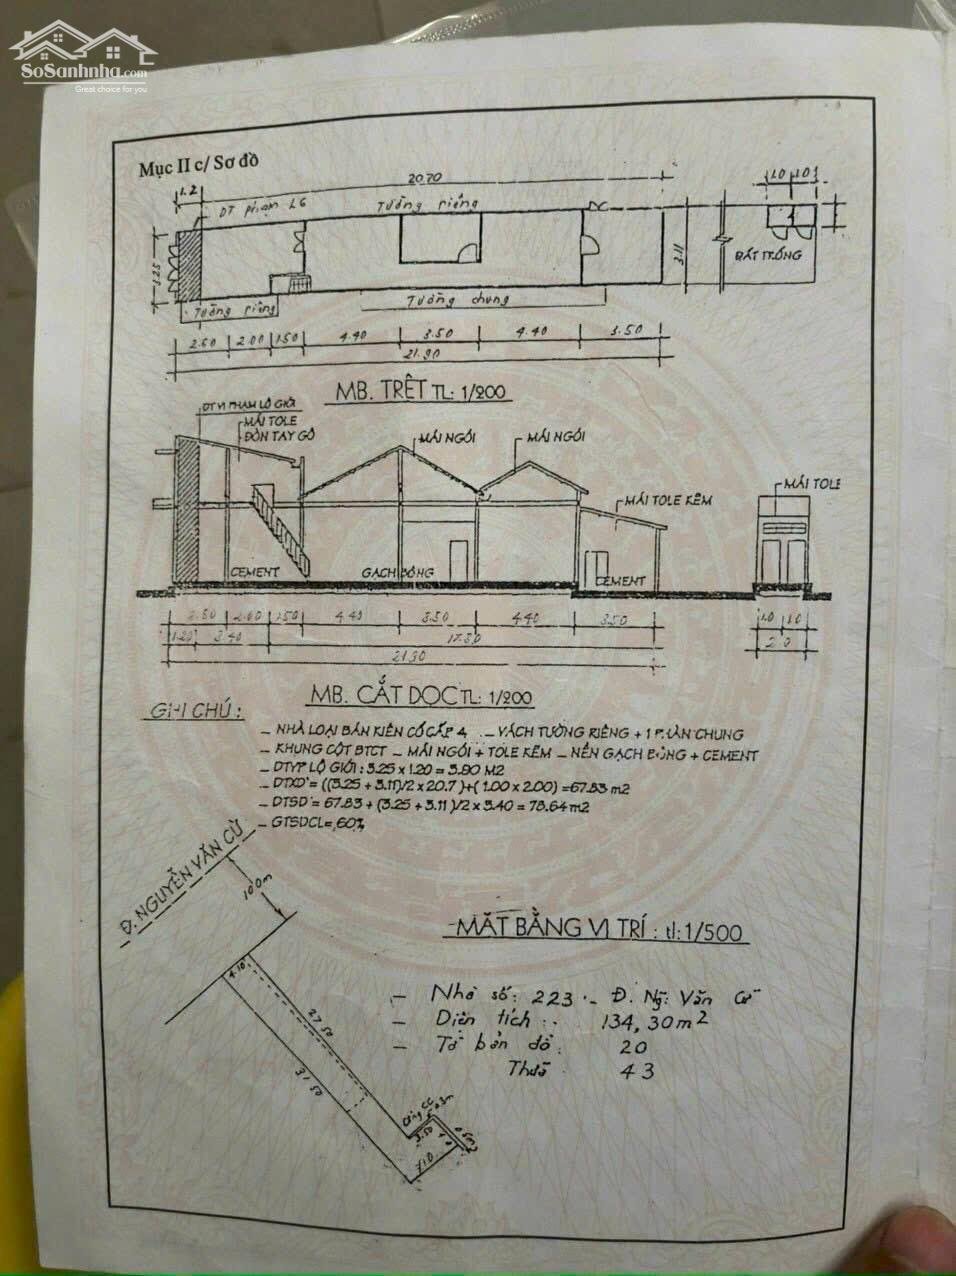 SoSanhnha.com
Great choice for you
Mục II c/ Sơ đồ
20.70
1.2
1.0 1.0
Tường riêng
3.25
3.11
ĐẤT TRỐNG
Tường riêng
Tường chung
2.60 2.00 1.50 4.40 3.50 4.40 3.50
21.90
MB. TRỆT TL: 1/200
DT VI PHẠM LỘ GIỚI
MÁI TOLE
ĐÒN TAY GỖ
MÁI NGÓI
MÁI NGÓI
MÁI TOLE
MÁI TOLE KẼM
CEMENT
GẠCH BÔNG
CEMENT
2.60 2.00 1.50 4.40 3.50 4.40 3.50
1.0 1.0
1.20 3.40 17.30
2.0
21.90
MB. CẮT DỌC TL: 1/200
GHI CHÚ :
- NHÀ LOẠI BÁN KIÊN CỐ CẤP 4 - VÁCH TƯỜNG RIÊNG + 1 PHẦN CHUNG
- KHUNG CỘT BTCT - MÁI NGÓI + TOLE KẼM - NỀN GẠCH BÔNG + CEMENT
- DTVP LỘ GIỚI : 3.25 x 1.20 = 3.90 M2
- DTXD = ((3.25 + 3.11)/2 x 20.7 ) + ( 1.00 x 2.00) = 67.83 m2
- DTSD = 67.83 + (3.25 + 3.11 )/2 x 3.40 = 78.64 m2
- GTSDCL = 60%
Đ. NGUYỄN VĂN CỪ
100m
MẶT BẰNG VỊ TRÍ : tl: 1/500
4.10
27.50
31.50
- Nhà số: 223 - Đ. Ng. Văn Cừ
- Diện tích : 134,30m2
- Tờ bản đồ: 20
Thửa 43
3.50
7.10